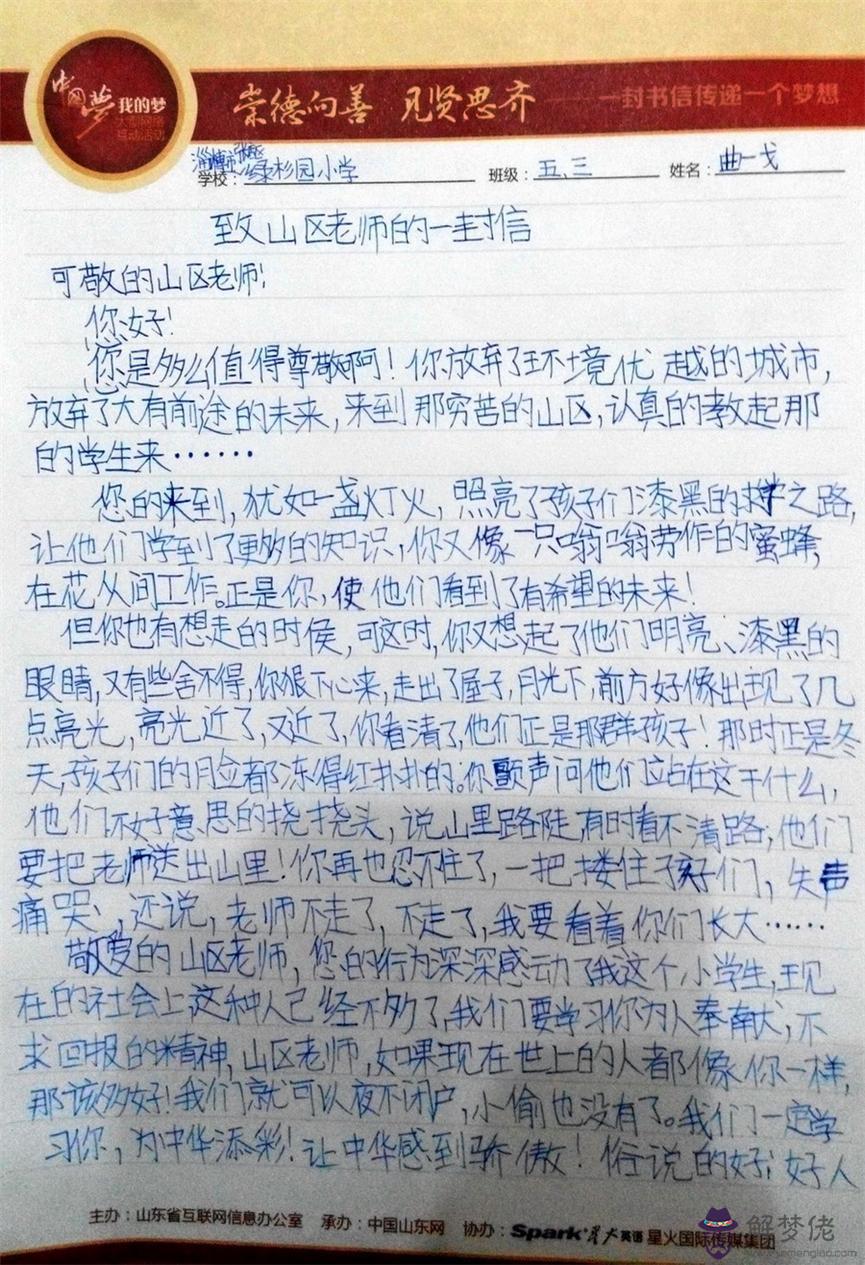 中国梦 我的梦
大型网络
互动活动
崇德向善 见贤思齐 ——一封书信传递一个梦想
学校：淄博市张店绿杉园小学 班级：五、三 姓名：曲一戈
致山区老师的一封信
可敬的山区老师！
您好！
您是多么值得尊敬啊！你放弃了环境优越的城市，
放弃了大有前途的未来，来到那穷苦的山区，认真的教起那
的学生来……
您的来到，犹如一盏灯火，照亮了孩子们漆黑的求学之路，
让他们学到了更多的知识，你又像一只嗡嗡劳作的蜜蜂，
在花丛间工作。正是你，使他们看到了有希望的未来！
但你也有想走的时侯，可这时，你又想起了他们明亮、漆黑的
眼睛，又有些舍不得，你狠下心来，走出了屋子，月光下，前方好像出现了几
点亮光，亮光近了，又近了，你看清了，他们正是那群孩子！那时正是冬
天，孩子们的脸都冻得红扑扑的。你颤声问他们站在这干什么，
他们不好意思的挠挠头，说山里路陡，有时看不清路，他们
要把老师送出山里！你再也忍不住了，一把搂住孩子们，失声
痛哭，还说，老师不走了，不走了，我要看着你们长大……
敬爱的山区老师，您的行为深深感动了我这个小学生，现
在的社会上这种人已经不多了，我们要学习你为人奉献，不
求回报的精神，山区老师，如果现在世上的人都像你一样，
那该多好！我们就可以夜不闭户，小偷也没有了。我们一定学
习你，为中华添彩！让中华感到骄傲！俗说的好：好人
主办：山东省互联网信息办公室 承办：中国山东网 协办：Spark·星火英语 星火国际传媒集团
解梦佬